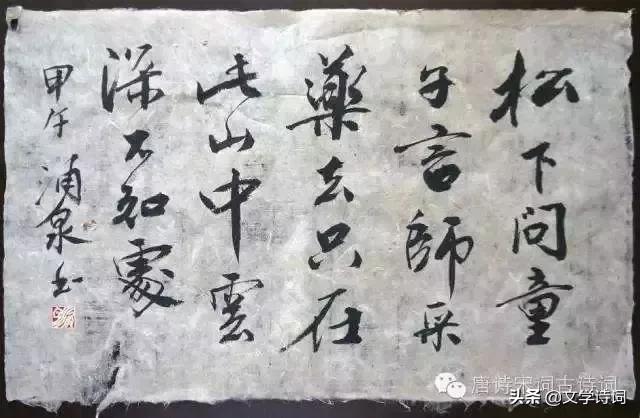 松下问童
子言師采
藥去只在
此山中雲
深不知處
甲午 涌泉书
唐诗宋词古诗词
头条 @文学诗词